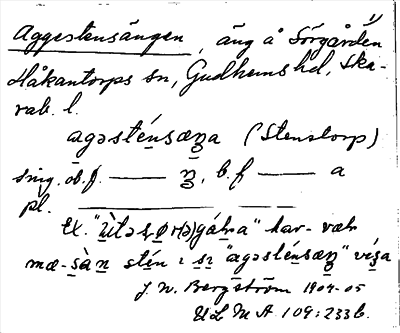 1)
Aggestensängen, äng å Sörgården
Håkantorps sn, Gudhems hd, Ska-
rab. l.
agəsténsæŋa (Stenstorp)
sing. ob. f. —— ŋ, b. f —— a
pl. ——
Ex. har-vah
stén "agəsténsæŋ"
J. N. Bergström 1904-05
ULMA 109:233 b.